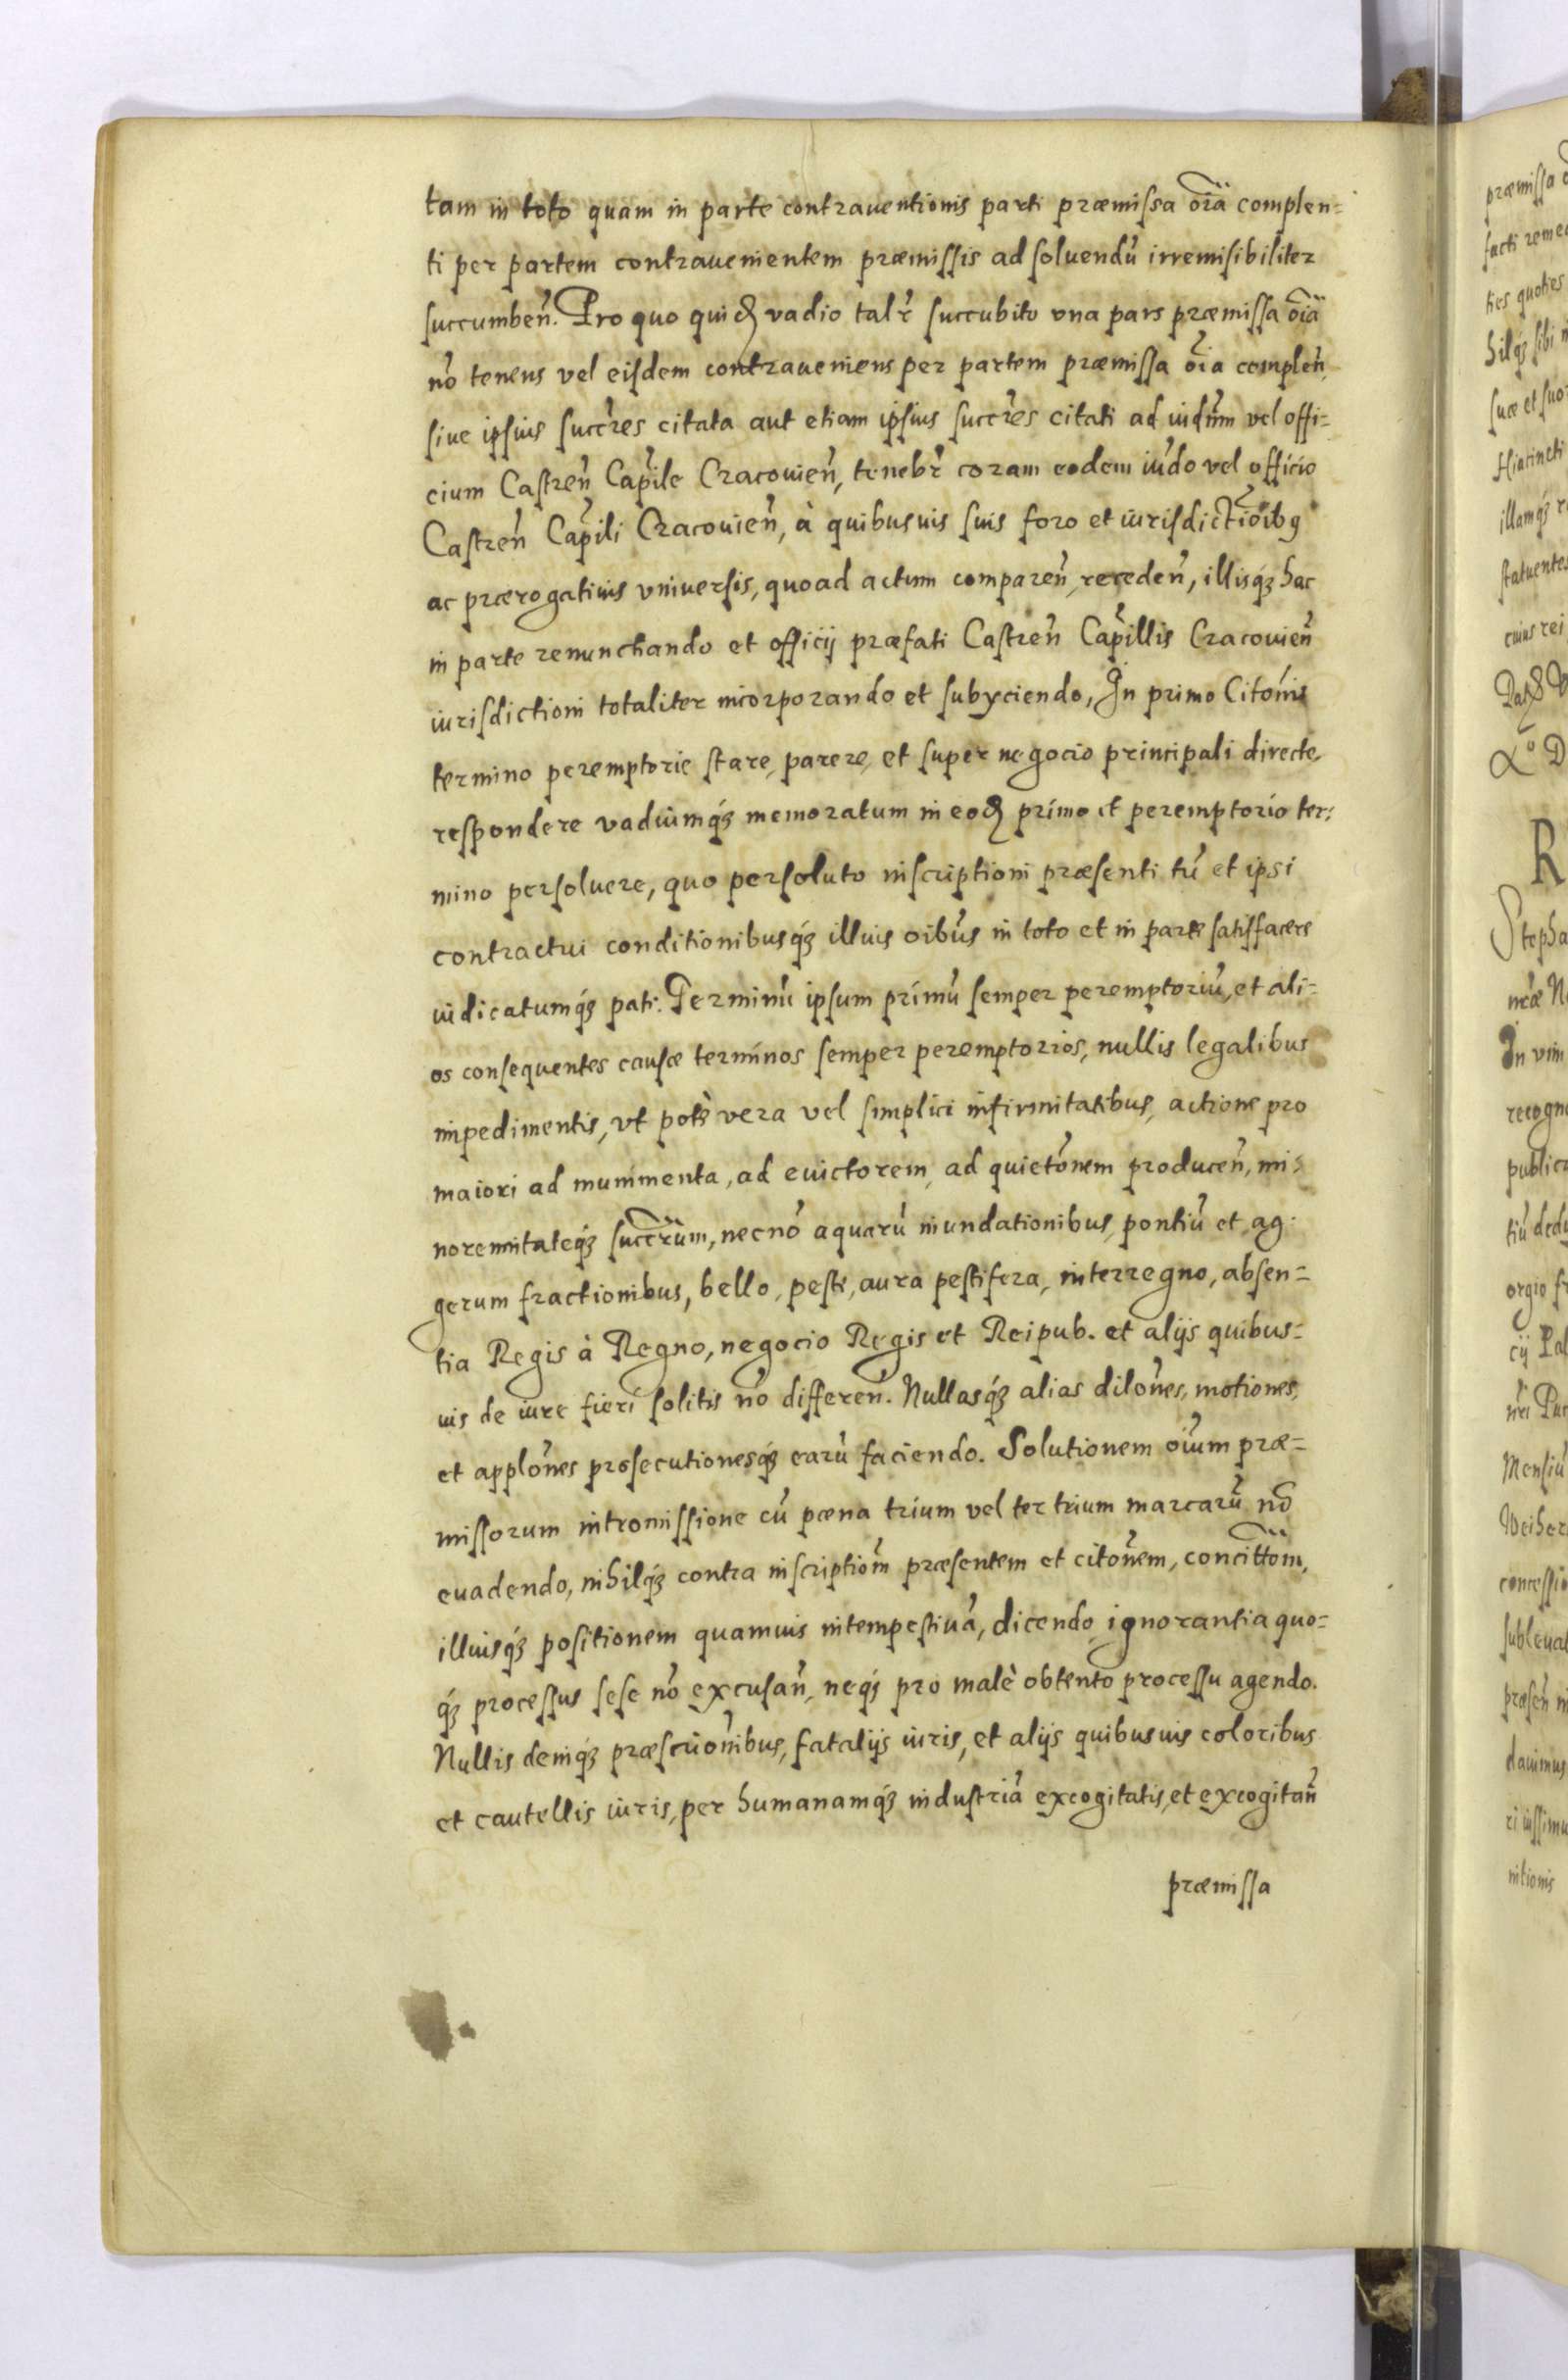 tam in toto quam in parte contrauentionis parti præmissa oı̃a complen=
ti per partem contrauenientem præmissis ad soluendũ irremisibiliter
succumbeñ. Pro quo quidẽ vadio talr̃ succubito vna pars præmissa oı̃a
nõ tenens vel eisdem contraueniens per partem præmissa oı̃a compleñ,
siue ipsius succr̃es citata aut etiam ipsius succr̃es citati ad iudm̃ vel offi=
cium Castreñ Capı̃le Cracouieñ, tenebr̃ coram eodem iũdo vel officio
Castreñ Capı̃li Cracouieñ, à quibusuis suis foro et iurisdictioı̃bꝯ
ac prærogatiuis vniuersis, quoad actum compareñ, recedeñ, illisqꝫ hac
in parte renunctiando et officij præfati Castreñ Capı̃llis Cracouieñ
iurisdictioni totaliter incorporando et subyciendo, In primo Citoñis
termino peremptorie stare, parere, et super negocio principali directe,
respondere vadiumqꝫ memoratum in eodẽ primo et peremptorio ter=
mino persoluere, quo persoluto inscriptioni præsenti tũ et ipsi
contractui conditionibusqꝫ illius oibũs in toto et in parte satisfacere
iudicatumqꝫ pati. Terminũ ipsum primũ semper peremptoriũ, et ali=
os consequentes causæ terminos semper peremptorios, nullis legalibus
impedimentis, vt potè vera vel simplici infirmitatibus, actione pro
maiori ad munimenta, ad euictorem, ad quietoñem produceñ, mi=
norennitateqꝫ succr̃um, necnõ aquarũ inundationibus, pontiũ et ag=
gerum fractionibus, bello, peste, aura pestifera, interregno, absen=
tia Regis à Regno, negocio Regis et Reipub. et alijs quibus=
uis de iure fieri solitis nõ differeñ. Nullasqꝫ alias diloñes, motiones,
et apploñes prosecutionesqꝫ earũ faciendo. Solutionem oiũm præ=
missorum intromissione cũ pœna trium vel ter trium marcarũ nõ
euadendo, nihilqꝫ contra inscriptiom̃ præsentem et citoñem, concittom̃,
illiusqꝫ positionem quamuis intempestiuã, dicendo ignorantia quo=
qꝫ processus sese nõ excusañ, neqꝫ pro malè obtento processu agendo.
Nullis deniqꝫ præscrioñibus, fatalijs iuris, et alijs quibusuis coloribus
et cautellis iuris, per humanamqꝫ industriã excogitatis, et excogitañ
præmissa